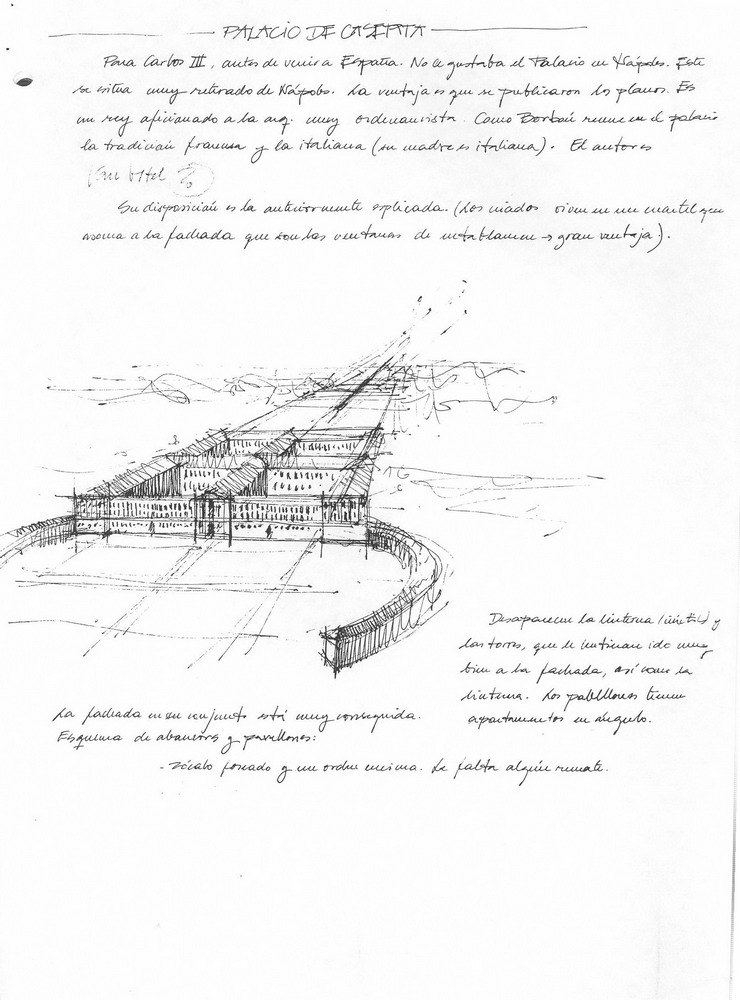 PALACIO DE CASERTA
Para Carlos III, antes de venir a España. No le gustaba el Palacio en Nápoles. Este
se sitúa muy retirado de Nápoles. La ventaja es que se publicaron los planos. Es
un rey aficionado a la arq. muy ordenancista. Como Borbón reune en el palacio
la tradición francesa y la italiana (su madre es italiana). El autor es
Van Vitel
Su disposición es la anteriormente explicada. (Los criados viven en un cuartel que
asoma a la fachada que son las ventanas de entablamen → gran ventaja).
Desaparecen la linterna y
las torres, que le ido muy
bien a la fachada, así como la
linterna. Los pabellones tienen
apartamentos en ángulo.
La fachada en su conjunto está muy conseguida.
Esquema de avances y pavellones:
- Zócalo y un orden encima. Le falta algún remate.